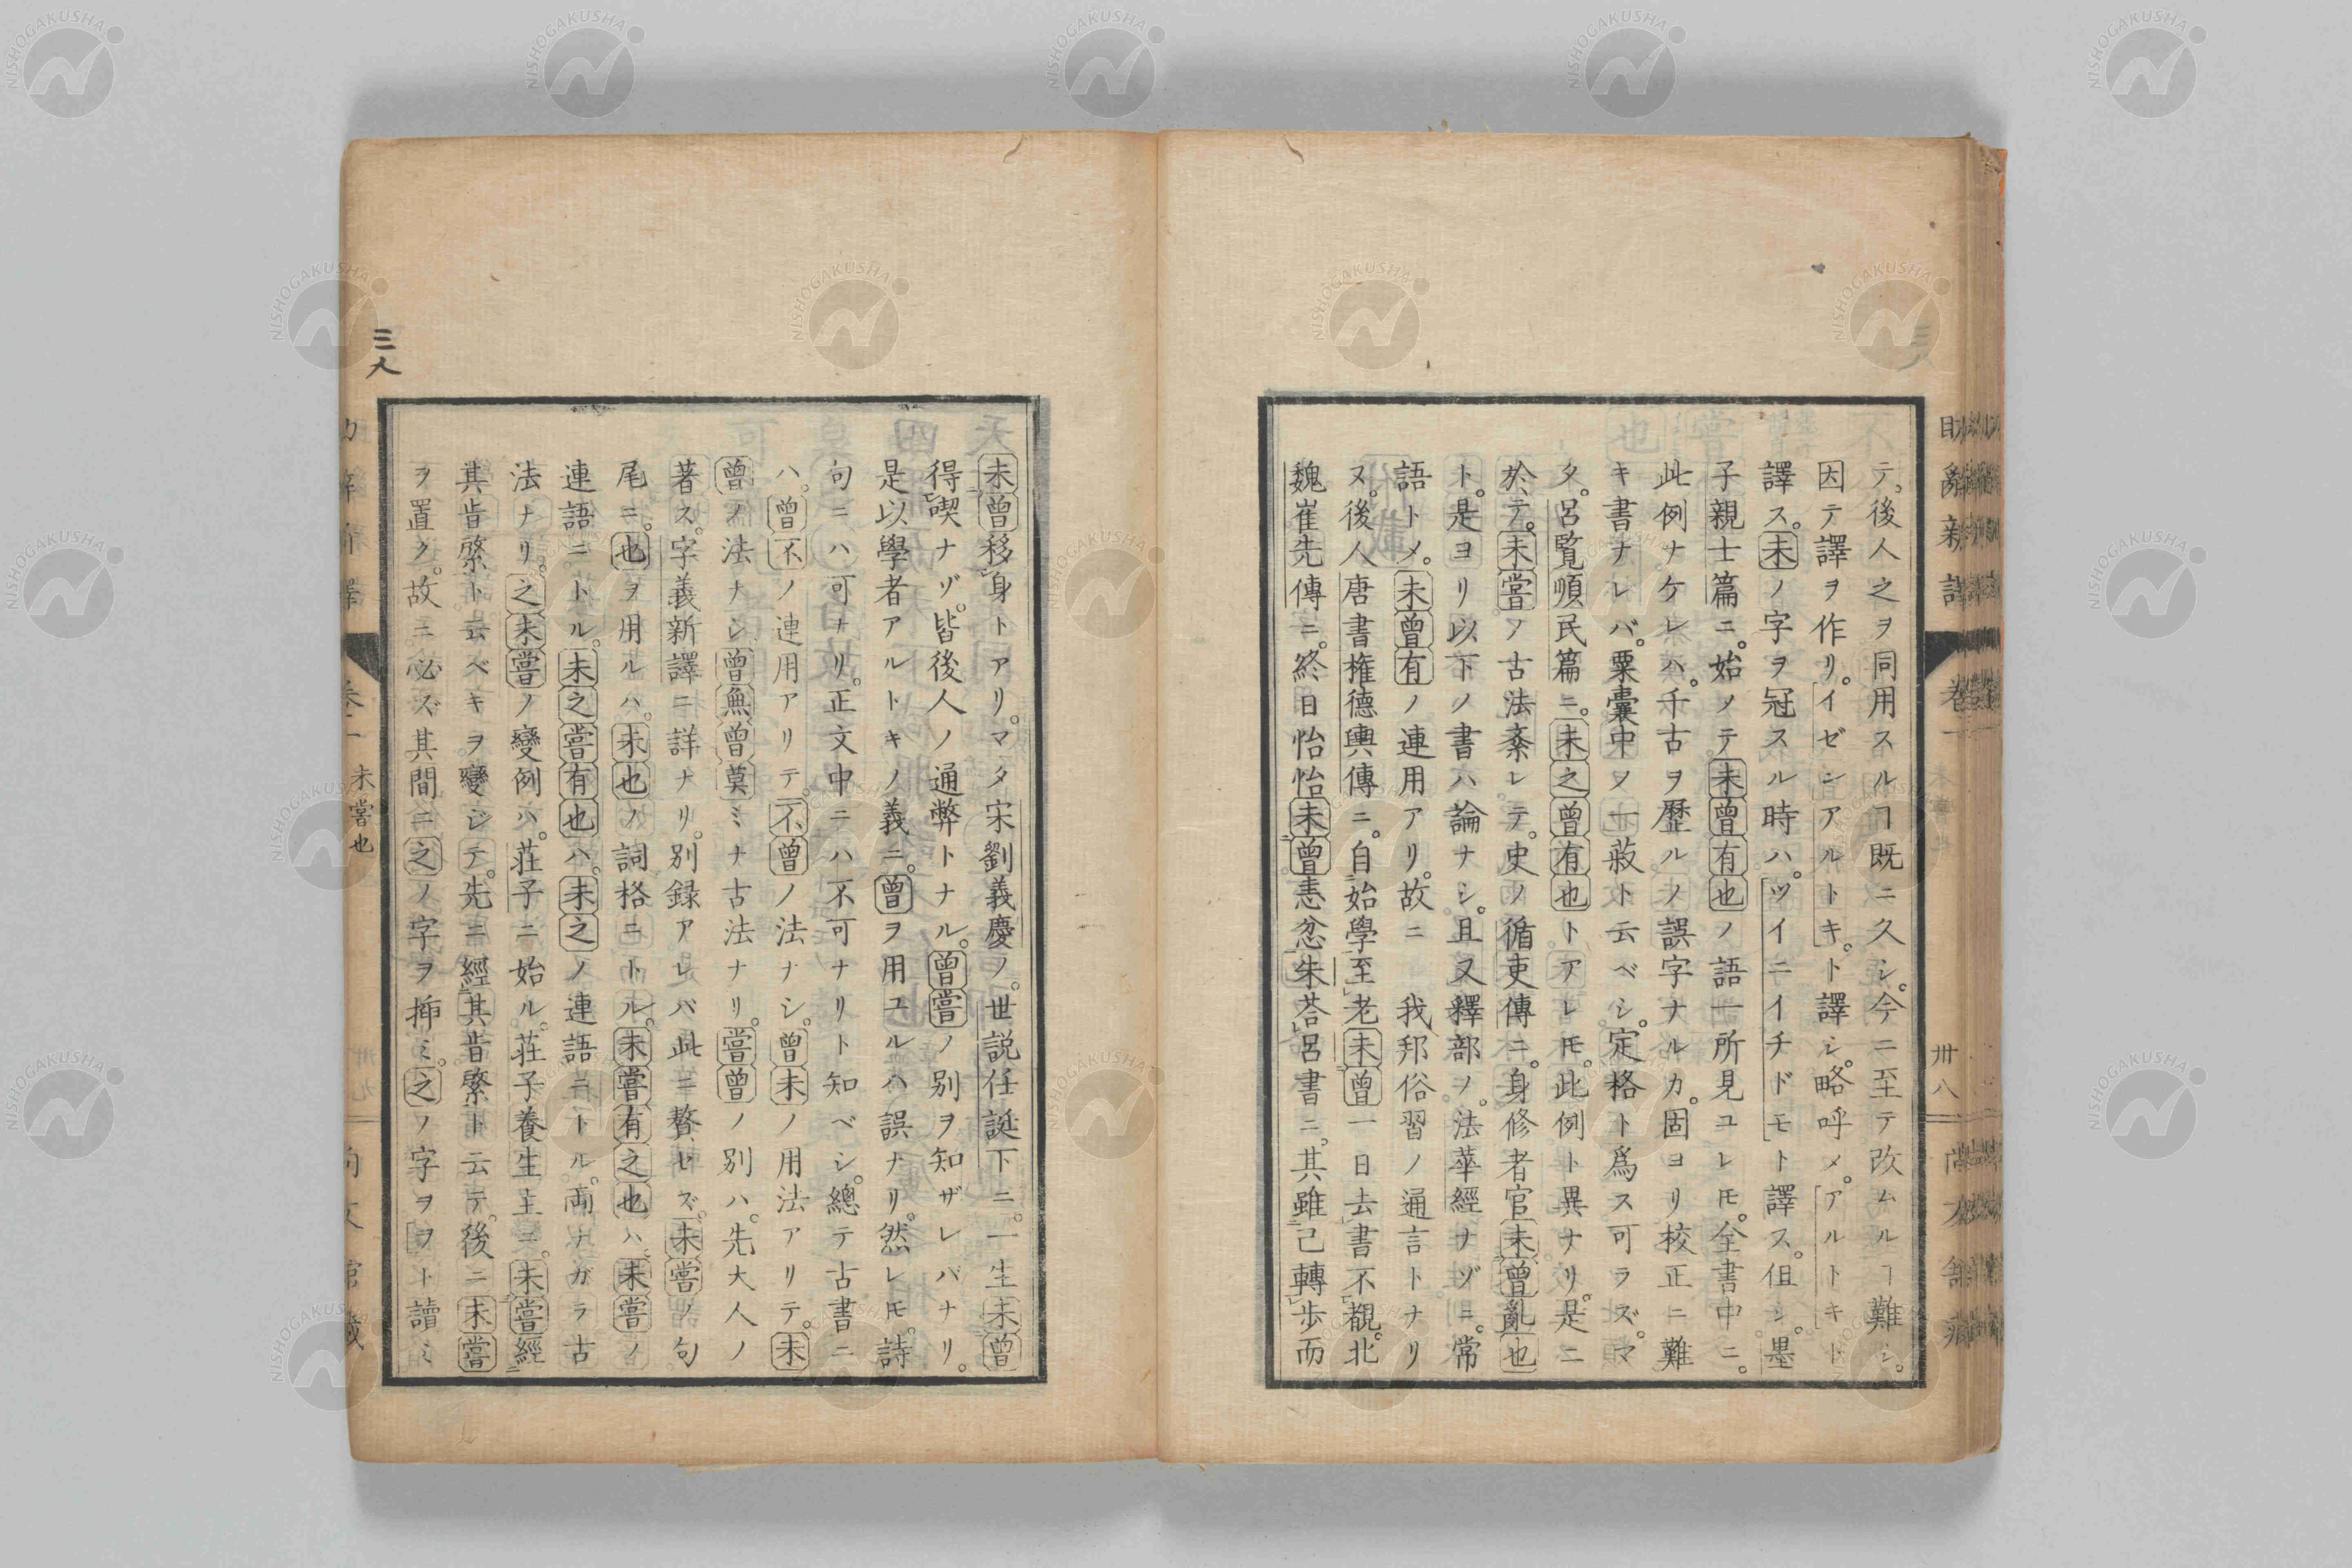 テ。後人之ヲ同用スルヿ既ニ久シ。今ニ至テ改ムルヿ難シ。
因テ譯ヲ作リ。イゼンアルトキ。ト譯シ。略呼メ。アルトキト
譯ス。未ノ字ヲ冠スル時ハ。ツイニイチドモト譯ス。但シ。墨
子親士篇ニ。始ノテ未曾有也ノ語一所見ユレ𪜈。全書中ニ。
此例ナケレハ。千古ヲ歴ルノ誤字ナルカ。固ヨリ校正ニ難
キ書ナレバ。粟囊中ノ一菽ト云ベシ。定格ト爲ス可ラズ。マ
タ。呂覧順民篇ニ。未之曾有也トアレ𪜈。此例ト異ナリ。是ニ
於テ。未嘗ノ古法紊レテ。史ノ循吏傳ニ。身修者官未曾亂也
ト。是ヨリ以下ノ書ハ論ナシ。且又釋部ノ。法華經ナゾニ。常
語トメ。未曾有ノ連用アリ。故ニ 我邦俗習ノ通言トナリ
ヌ。後人唐書権德輿傳ニ。自始學至老未曾一日去書不観。北
魏崔先傳ニ。終日怡怡未曾恚忿朱荅呂書ニ。其雖己轉歩而
未曾移身トアリ。マタ宋劉義慶ノ。世説任誕下ニ。一生未曾
得喫ナゾ。皆後人ノ通弊トナル。曾嘗ノ別ヲ知ザレバナリ。
是以學者アルトキノ義ニ。曾ヲ用ユルハ誤ナリ。然レ𪜈。詩
句ニハ可ナリ。正文中ニハ不可ナリト知ベシ。總テ古書ニ
ハ。曾不ノ連用アリテ。不曾ノ法ナシ。曾未ノ用法アリテ。未
曾ノ法ナシ。曾無曾莫ミナ古法ナリ。嘗曾ノ別ハ。先大人ノ
著ス。字義新譯ニ詳ナリ。別録アレバ此ニ贅セズ。未嘗ノ句
尾ニ。也ヲ用ルハ。未也ノ詞格ニトル。未嘗有之也ハ。未嘗ノ
連語ニトル。未之嘗有也ハ。未之ノ連語ニトル。両ナガラ古
法ナリ。之未嘗ノ變例ハ。荘子ニ始ル。荘子養生主ニ。未嘗經
其肯綮ト云ベキヲ。變シテ。先ニ經其肯綮ト云テ。後ニ未嘗
ヲ置ク。故ニ必ズ其間ニ之ノ字ヲ挿ミ。之ノ字ヲヲト讀ミ
助辭新譯
卷一
卅八
三八
未嘗也